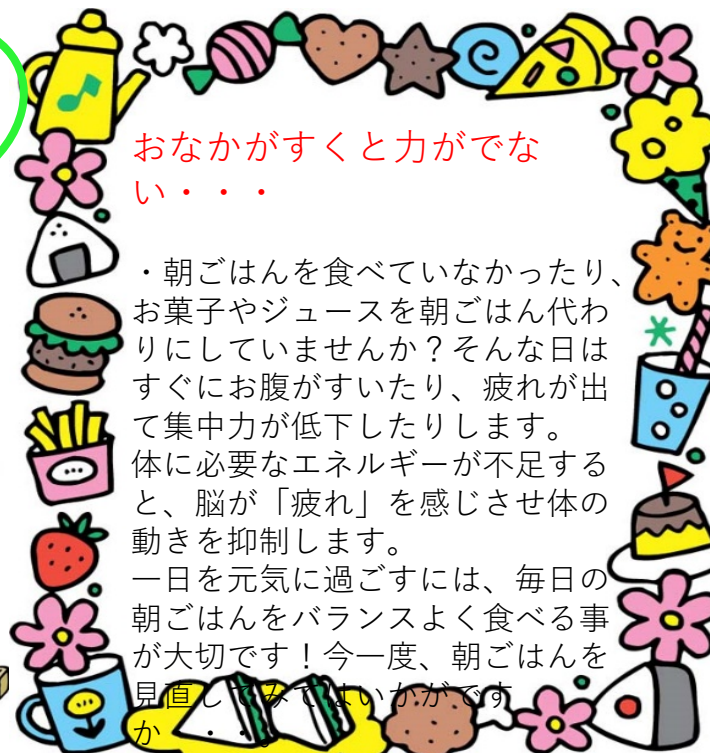 おなかがすくと力がでな
い・・・
・朝ごはんを食べていなかったり、
お菓子やジュースを朝ごはん代わ
りにしていませんか？そんな日は
すぐにお腹がすいたり、疲れが出
て集中力が低下したりします。
体に必要なエネルギーが不足する
と、脳が「疲れ」を感じさせ体の
動きを抑制します。
一日を元気に過ごすには、毎日の
朝ごはんをバランスよく食べる事
が大切です！今一度、朝ごはんを
見直してみてはいかがです
か・・。